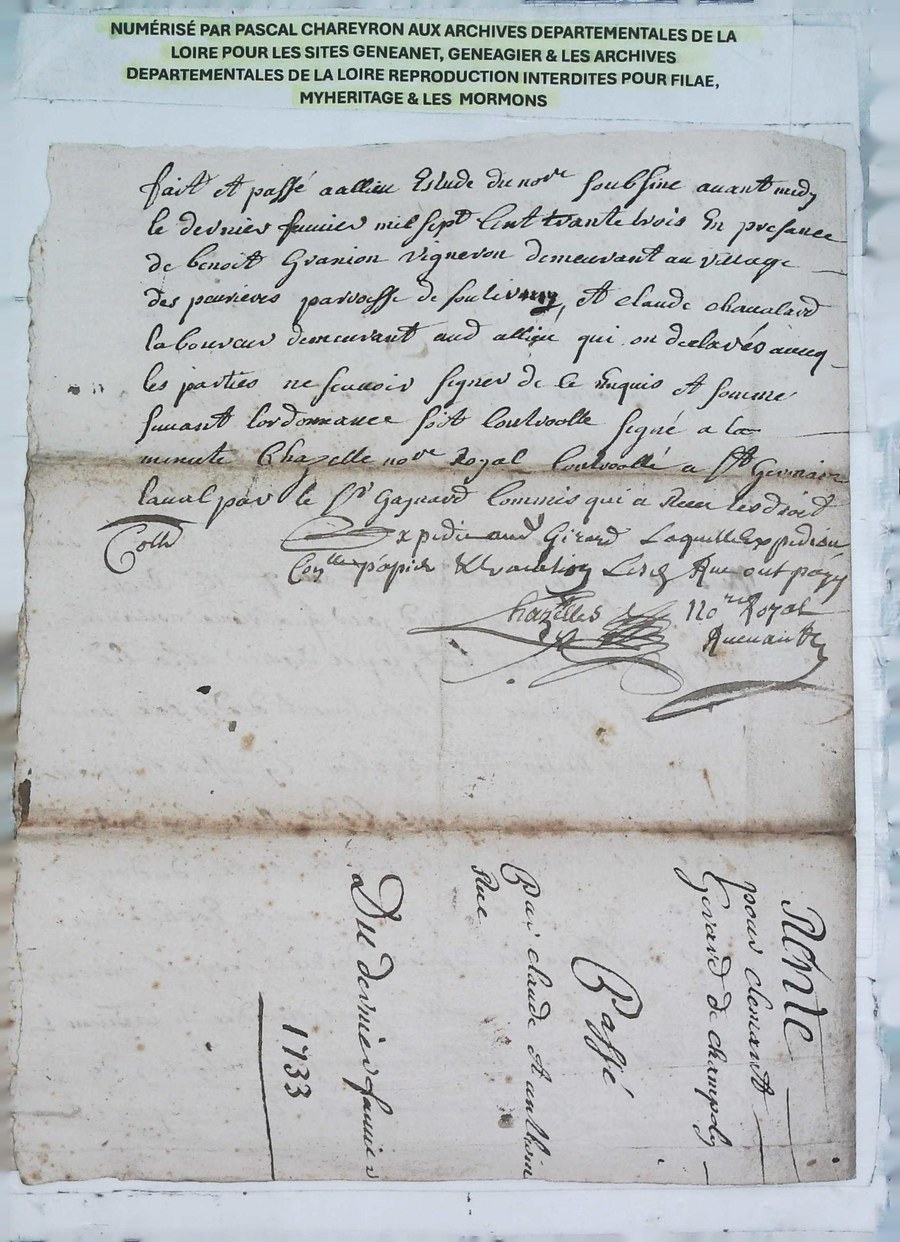 NUMÉRISÉ PAR PASCAL CHAREYRON AUX ARCHIVES DEPARTEMENTALES DE LA
LOIRE POUR LES SITES GENEANET, GENEAGIER & LES ARCHIVES
DEPARTEMENTALES DE LA LOIRE REPRODUCTION INTERDITES POUR FILAE,
MYHERITAGE & LES MORMONS
fait et passé a allieu Estude du nore soubsine auant midy
le dernier januier mil sept Cent trante trois En presance
de benoit Granion vigneron demeurant au village
des peurieres paroesse de et claude chaualard
laboureur demeurant aud allieu qui on declarés aueq
les parties ne scauoir signer de ce Enquis et somme
suiuant lordonnance soit Controolle signé a la
minutte Chazelle nore Royal Controollé a St Germain
laual par le Sr Gagnard Commis qui a Receu les droid
Coll
Expedie aud Girard Laquelle Expediõn
papier Les Rue ont payé
Chazelles Nore Royal
Rante
pour clemant
Girard de champoly
Passé
Par claude et anthoine
Rue
Du dernier januier
1733